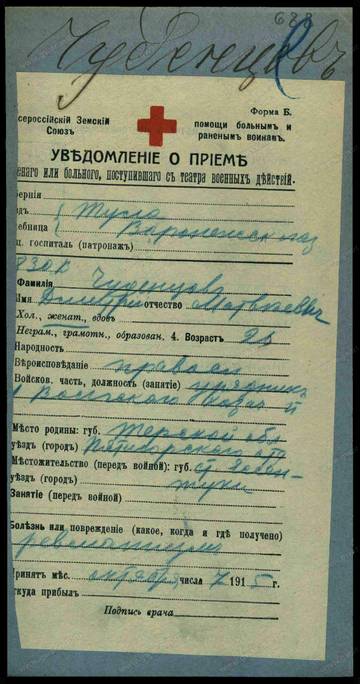 623
Чуденцовъ
сероссійскій Земскій Союзъ
Форма Б.
помощи больнымъ и раненымъ воинамъ.
УВѢДОМЛЕНІЕ О ПРІЕМѢ
енаго или больного, поступившаго съ театра военныхъ дѣйствій.
бернія
здъ Тула
чебница
ц. госпиталь (патронажъ)
Фамилія Чуденцовъ
Имя Дмитрій отчество Матвѣевичъ
Хол., женат., вдовъ
Неграм., грамотн., образован. 4. Возрастъ 25
Народность
Вѣроисповѣданіе правосл
Войсков. часть, должность (занятіе) урядникъ
Мѣсто родины: губ. Терской обл
уѣздъ (городъ) Пятигорскаго отд
Мѣстожительство (передъ войной): губ. ст Ессен-
уѣздъ (городъ) туки
Занятіе (передъ войной)
Болѣзнь или поврежденіе (какое, когда и гдѣ получено)
ревматизм
Принятъ мѣс. октябр числа 7 1915 г.
ткуда прибылъ
Подпись врача